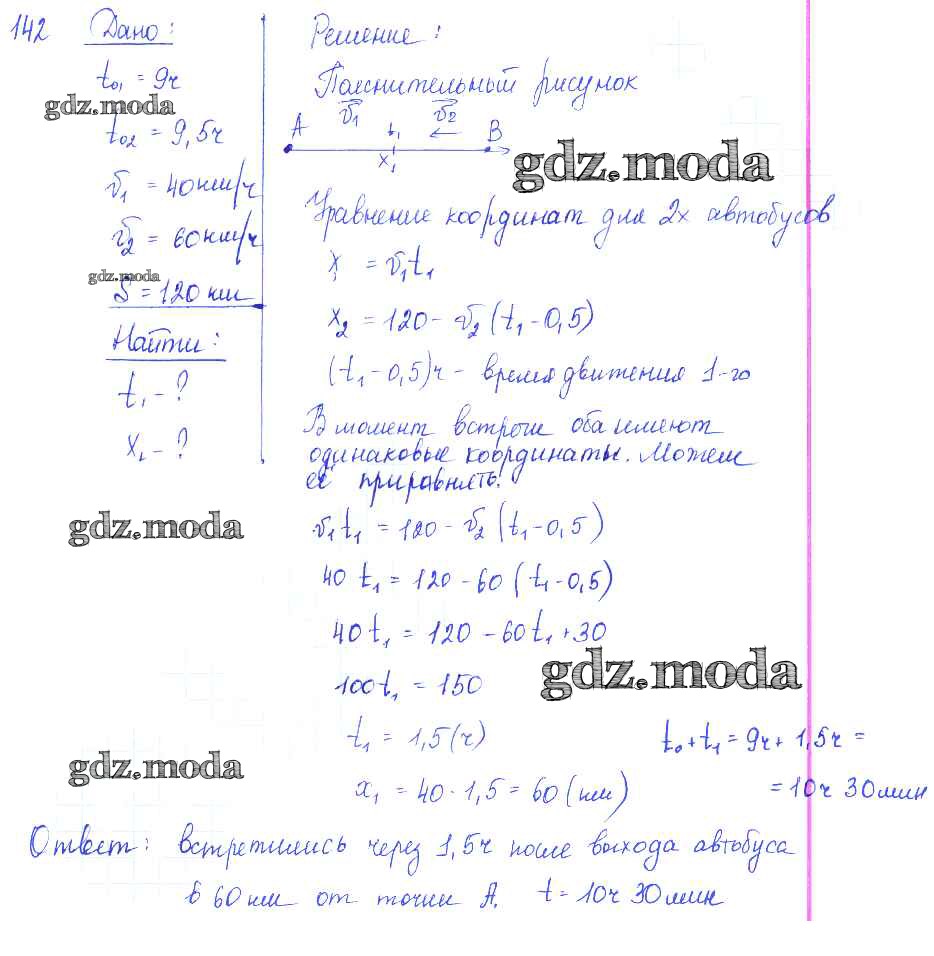 142 Дано:
t₀₁ = 9ч
gdz.moda
t₀₂ = 9,5ч
v₁ = 40км/ч
v₂ = 60км/ч
gdz.moda
S = 120 км
Найти:
t₁ - ?
x₁ - ?
gdz.moda
gdz.moda
Решение:
Пояснительный рисунок
A v₁ t₁ v₂ B
x₁
gdz.moda
Уравнение координат для 2х автобусов
x₁ = v₁t₁
x₂ = 120 - v₂ (t₁ - 0,5)
(t₁ - 0,5)ч - время движения 1-го
В момент встречи оба имеют
одинаковые координаты. Можем
её приравнять:
v₁t₁ = 120 - v₂ (t₁ - 0,5)
40 t₁ = 120 - 60 (t₁ - 0,5)
40t₁ = 120 - 60t₁ + 30
gdz.moda
100t₁ = 150
t₁ = 1,5 (ч)
x₁ = 40 · 1,5 = 60 (км)
t₀ + t₁ = 9ч + 1,5ч =
= 10ч 30мин
Ответ: встретились через 1,5ч после выхода автобуса
в 60км от точки A. t = 10ч 30мин